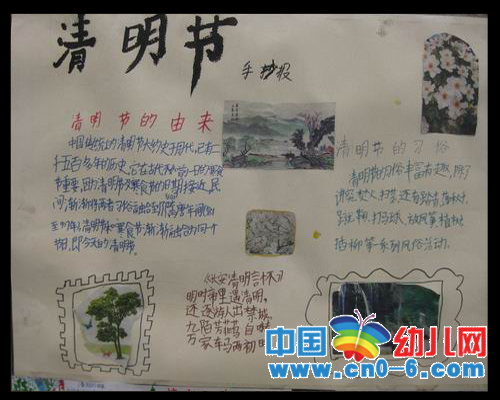 清明节
手抄报
清明节的由来
中国传统的清明节大约始于周代,已有二
千五百多年的历史,
节重要,因为清明节与寒食节的日期接近,民
间渐渐将两者
清明节
节日,即今天的清明节。
清明节的习俗
清明节的习俗丰富有趣,除了
讲究禁火、扫墓,还有踏青、荡秋千、
蹴鞠、打马球、放风筝、植树、
插柳等系列风俗活动。
《长安清明言怀》
明时帝里遇清明,
还逐游人出禁城。
九陌芳菲
万家车马雨初
中国幼儿网
www.cn0-6.com